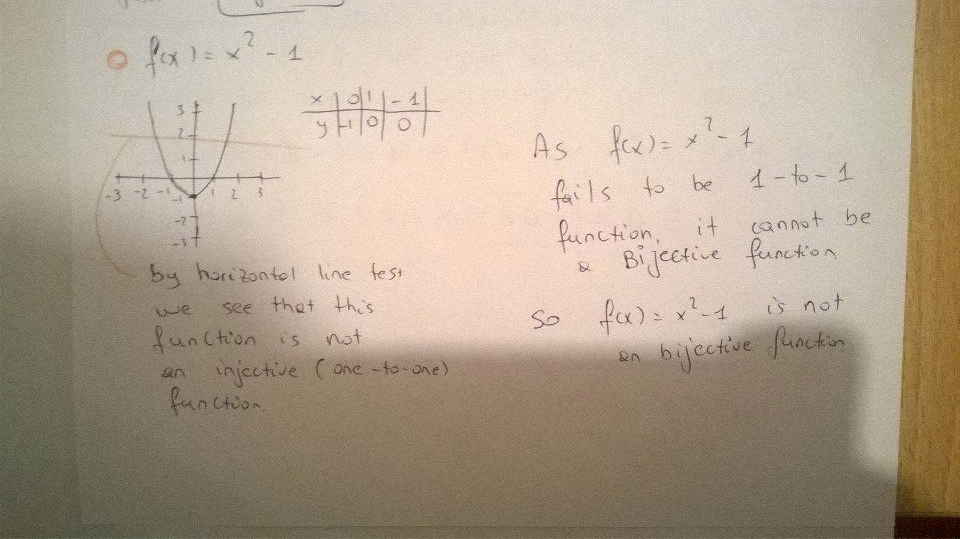 f(x) = x² - 1
3
2
1
-3 -2 -1 1 2 3
-1
-2
-3
x | 0 | 1 | -1 |
y | -1 | 0 | 0 |
by horizontal line test
we see that this
function is not
an injective (one-to-one)
function.
As f(x) = x² - 1
fails to be 1-to-1
function, it cannot be
a Bijective function
So f(x) = x² - 1 is not
an bijective function